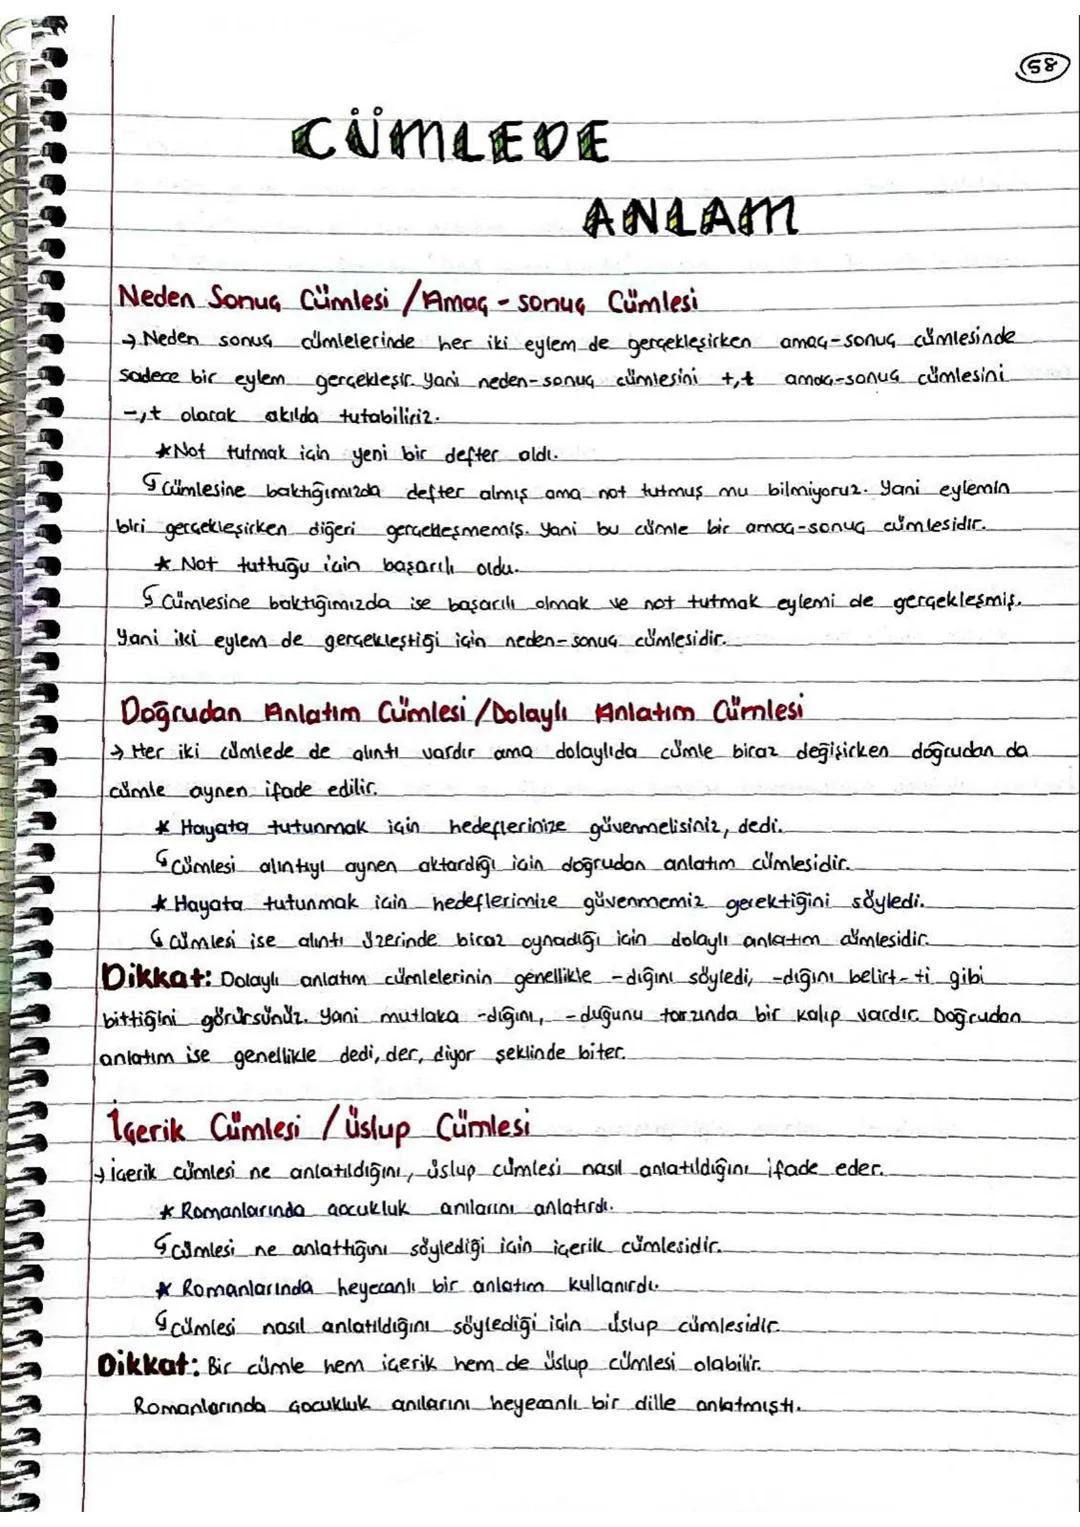 58
CÜMLEDE
ANLAM
Neden Sonuç Cümlesi / Amaç - sonuç Cümlesi
→ Neden sonuç cümlelerinde her iki eylem de gerçekleşirken amaç-sonuç cümlesinde
sadece bir eylem gerçekleşir. Yani neden-sonuç cümlesini +,+ amaç-sonuç cümlesini
-,+ olarak akılda tutabiliriz.
* Not tutmak için yeni bir defter aldı.
↳ Cümlesine baktığımızda defter almış ama not tutmuş mu bilmiyoruz. Yani eylemin
biri gerçekleşirken diğeri gerçekleşmemiş. Yani bu cümle bir amaç-sonuç cümlesidir.
* Not tuttuğu için başarılı oldu.
↳ Cümlesine baktığımızda ise başarılı olmak ve not tutmak eylemi de gerçekleşmiş.
Yani iki eylem de gerçekleştiği için neden-sonuç cümlesidir.
Doğrudan Anlatım Cümlesi / Dolaylı Anlatım Cümlesi
→ Her iki cümlede de alıntı vardır ama dolaylıda cümle biraz değişirken doğrudan da
cümle aynen ifade edilir.
* Hayata tutunmak için hedeflerinize güvenmelisiniz, dedi.
↳ Cümlesi alıntıyı aynen aktardığı için doğrudan anlatım cümlesidir.
* Hayata tutunmak için hedeflerimize güvenmemiz gerektiğini söyledi.
↳ Cümlesi ise alıntı üzerinde biraz oynadığı için dolaylı anlatım cümlesidir.
Dikkat: Dolaylı anlatım cümlelerinin genellikle -dığını söyledi, -dığını belirt-ti gibi
bittiğini görürsünüz. Yani mutlaka -dığını, -duğunu tarzında bir kalıp vardır. Doğrudan
anlatım ise genellikle dedi, der, diyor şeklinde biter.
İçerik Cümlesi / Üslup Cümlesi
→ İçerik cümlesi ne anlatıldığını, üslup cümlesi nasıl anlatıldığını ifade eder.
* Romanlarında çocukluk anılarını anlatırdı.
↳ Cümlesi ne anlattığını söylediği için içerik cümlesidir.
* Romanlarında heyecanlı bir anlatım kullanırdı.
↳ Cümlesi nasıl anlatıldığını söylediği için üslup cümlesidir.
Dikkat: Bir cümle hem içerik hem de üslup cümlesi olabilir.
Romanlarında çocukluk anılarını heyecanlı bir dille anlatmıştı.